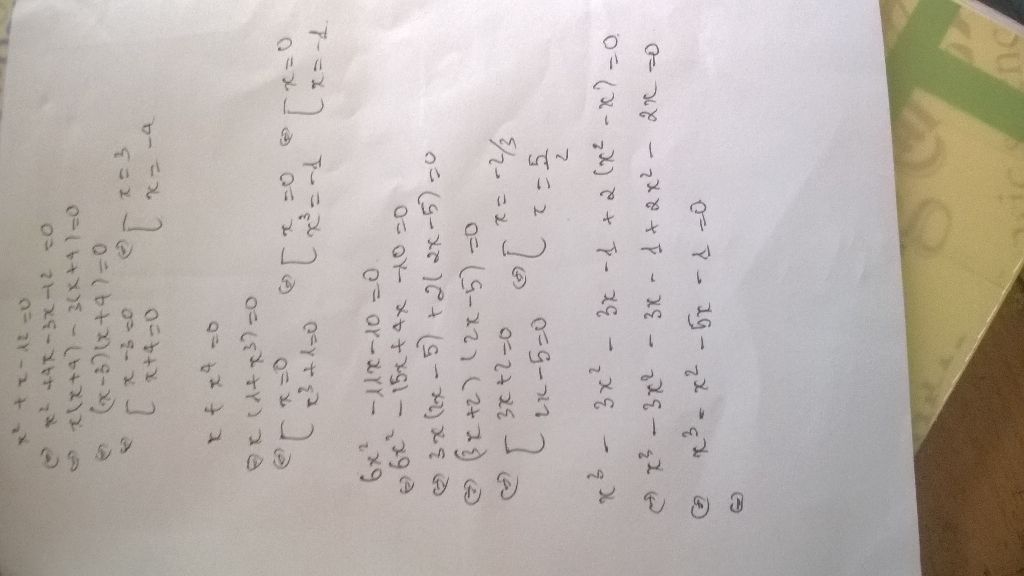 x² + x - 12 = 0
⇔ x² + 4x - 3x - 12 = 0
⇔ x(x+4) - 3(x+4) = 0
⇔ (x-3)(x+4) = 0
⇔ [ x-3=0 ⇔ [ x=3
x+4=0 x=-4
x + x⁴ = 0
⇔ x(1+x³)=0
⇔ [ x=0 ⇔ [ x=0 ⇔ [ x=0
x³+1=0 x³=-1 x=-1
6x² - 11x - 10 = 0
⇔ 6x² - 15x + 4x - 10 = 0
⇔ 3x(2x-5) + 2(2x-5) = 0
⇔ (3x+2)(2x-5) = 0
⇔ [ 3x+2=0 ⇔ [ x = -2/3
2x-5=0 x = 5/2
x³ - 3x² - 3x - 1 + 2(x² - x) = 0
⇔ x³ - 3x² - 3x - 1 + 2x² - 2x = 0
⇔ x³ - x² - 5x - 1 = 0
⇔